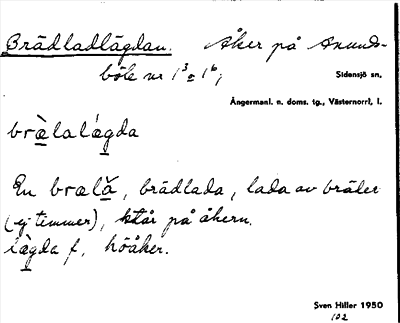 Brädladlägdan. Åker på Anunds-
böle nr 1³ o 1⁶,
Sidensjö sn,
Ångermanl. n. doms. tg., Västernorrl. l.
bràlalágda
En brală, brädlada, lada av bräder
(ej timmer), står på åkern.
làgda f, höåker.
Sven Hiller 1950
102